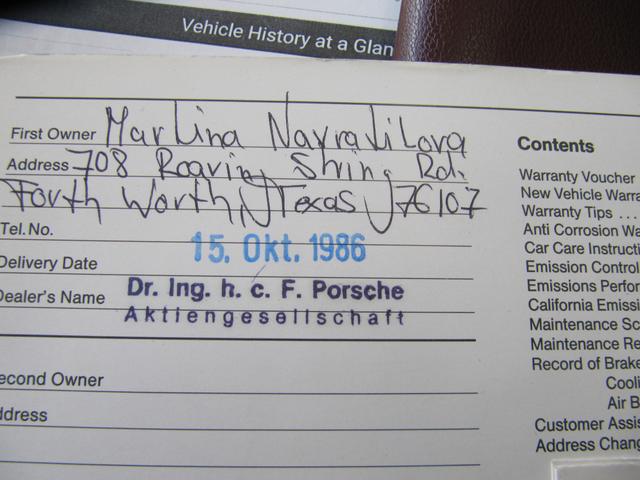 Vehicle History at a Glan
First Owner Martina Navratilova
Address 708 Roaring Shring Rd.
Forth Worth, Texas 76107
Tel.No.
Delivery Date 15. Okt. 1986
Dealer's Name Dr. Ing. h. c. F. Porsche
Aktiengesellschaft
econd Owner
ddress
Contents
Warranty Voucher
New Vehicle Warra
Warranty Tips . . .
Anti Corrosion Wa
Car Care Instructi
Emission Control
Emissions Perfor
California Emissi
Maintenance Sc
Maintenance Re
Record of Brake
Cooli
Air B
Customer Assis
Address Chang